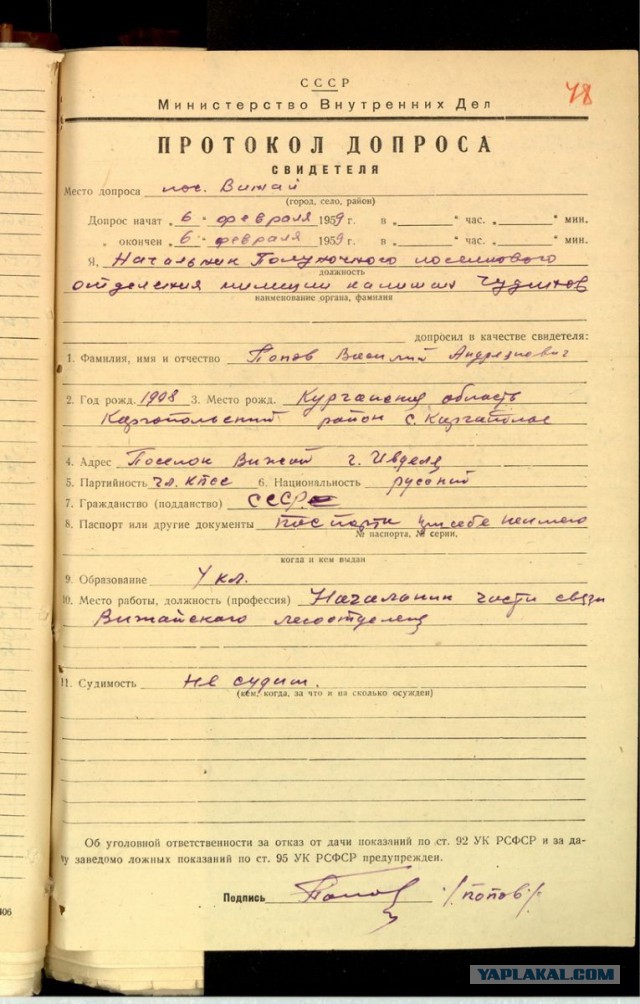 СССР
48
Министерство Внутренних Дел
ПРОТОКОЛ ДОПРОСА
СВИДЕТЕЛЯ
Место допроса пос. Вижай
(город, село, район)
Допрос начат „ 6 “ февраля 1959 г. в „ “ час. „ “ мин.
„ окончен 6 “ февраля 1959 г. в „ “ час. „ “ мин.
Я, Начальник Полуночного поселкового
должность
отделения милиции капитан Чудинов
наименование органа, фамилия
допросил в качестве свидетеля:
1. Фамилия, имя и отчество Попов Василий Андреевич
2. Год рожд. 1908 3. Место рожд. Курганская область
Каргопольский район с. Каргаполье
4. Адрес Поселок Вижай г. Ивделя
5. Партийность чл. КПСС 6. Национальность русский
7. Гражданство (подданство) СССР
8. Паспорт или другие документы паспорта при себе неимею
№ паспорта, № серии,
когда и кем выдан
9. Образование 4 кл.
10. Место работы, должность (профессия) Начальник части связи
Вижайского лесоотделения
11. Судимость не судим.
(кем, когда, за что и на сколько осужден)
Об уголовной ответственности за отказ от дачи показаний по ст. 92 УК РСФСР и за да-
чу заведомо ложных показаний по ст. 95 УК РСФСР предупрежден.
Подпись Попов /попов/.
406
YAPLAKAL.COM